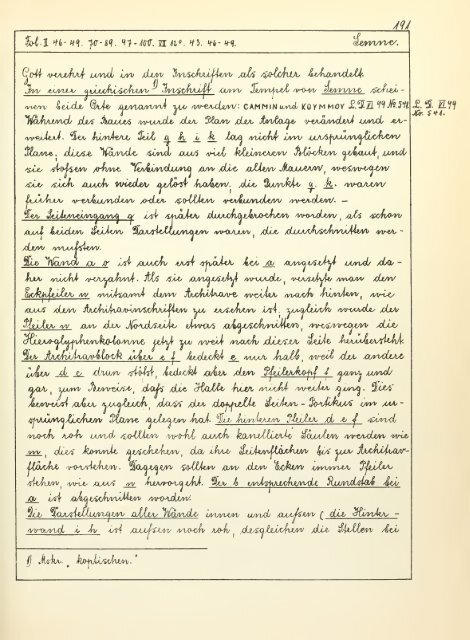 191
Fol. II 46-49. 70-89. 97-100. VII 12º. 43. 46-49. Semne.
Gott verehrt und in den Inschriften als solcher behandelt.
In einer griechischen¹) Inschrift am Tempel von Semne schei-
nen beide Orte genannt zu werden: CAMMIN und KOYMMOY L. D. VI 99 No. 541.
L. D. VI. 99
No. 541.
Während des Baues wurde der Plan der Anlage verändert und er-
weitert. Der hintere Teil g h i k lag nicht im ursprünglichen
Plane, diese Wände sind aus viel kleineren Blöcken gebaut, und
sie stofsen ohne Verbindung an die alten Mauern, weswegen
sie sich auch wieder gelöst haben, die Punkte g. k. waren
früher verbunden oder sollten verbunden werden. —
Der Seiteneingang q ist später durchgebrochen worden, als schon
auf beiden Seiten Darstellungen waren, die durchschnitten wer-
den mufsten.
Die Wand a o ist auch erst später bei a angesetzt und da-
her nicht verzahnt. Als sie angesetzt wurde, versetzte man den
Eckpfeiler n mitsamt dem Architrave weiter nach hinten, wie
aus den Architravinschriften zu ersehen ist, zugleich wurde der
Pfeiler n an der Nordseite etwas abgeschnitten, weswegen die
Hieroglyphenkolonne jetzt zu weit nach dieser Seite herübersteht.
Der Architravblock über e f bedeckt e nur halb, weil der andere
über d e dran stöfst, bedeckt aber den Pfeilerkopf f ganz und
gar, zum Beweise, dafs die Halle hier nicht weiter ging. Dies
beweist aber zugleich, dass der doppelte Seiten-Portikus im ur-
sprünglichen Plane gelegen hat. Die hinteren Pfeiler d e f sind
noch roh und sollten wohl auch kanellierte Säulen werden wie
m, dies konnte geschehen, da ihre Seitenflächen bis zur Architrav-
fläche vorstehen. Dagegen sollten an den Ecken immer Pfeiler
stehen, wie aus n hervorgeht. Der b entsprechende Rundstab bei
a ist abgeschnitten worden.
Die Darstellungen aller Wände innen und aufsen (die Hinter-
wand i h ist aufsen noch roh, desgleichen die Stellen bei
1) Mskr. „koptischen."